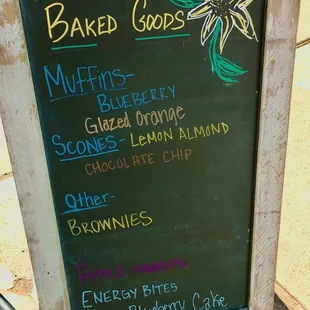 BAKED GOODS
Muffins-
BLUEBERRY
Glazed Orange
SCONES- LEMON ALMOND
CHOCOLATE CHIP
Other-
BROWNIES
ENERGY BITES
Blueberry Cake